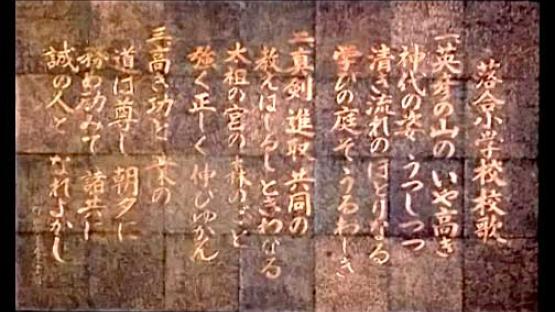 落合小学校校歌
一、英彦の山の いや高き
神代の姿 うつしつつ
清き流れの ほとりなる
学びの庭ぞ うるわしき
二、真剣 進取 共同の
教えはしるし ときわなる
太祖の宮の 森のごと
強く正しく 伸びゆかん
三、高き功と
道は尊し 朝夕に
務め励みて 諸共に
誠の人と なれよかし